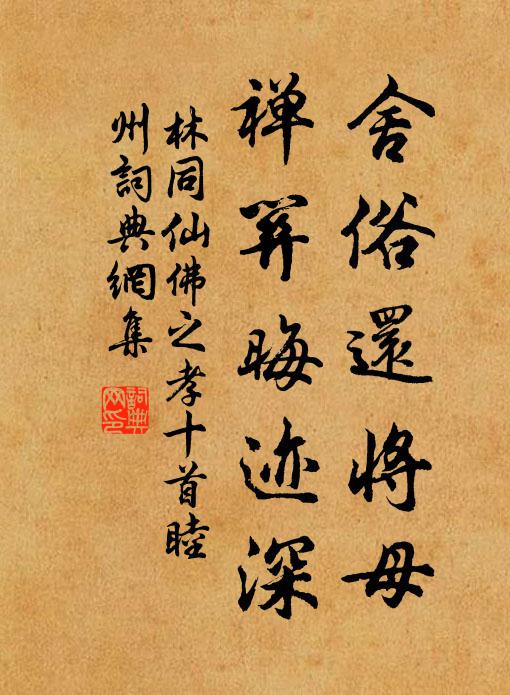 舍俗還將母
禅關晦迹深
林同仙佛之孝十首睦
州詞典網集
詞典
网印